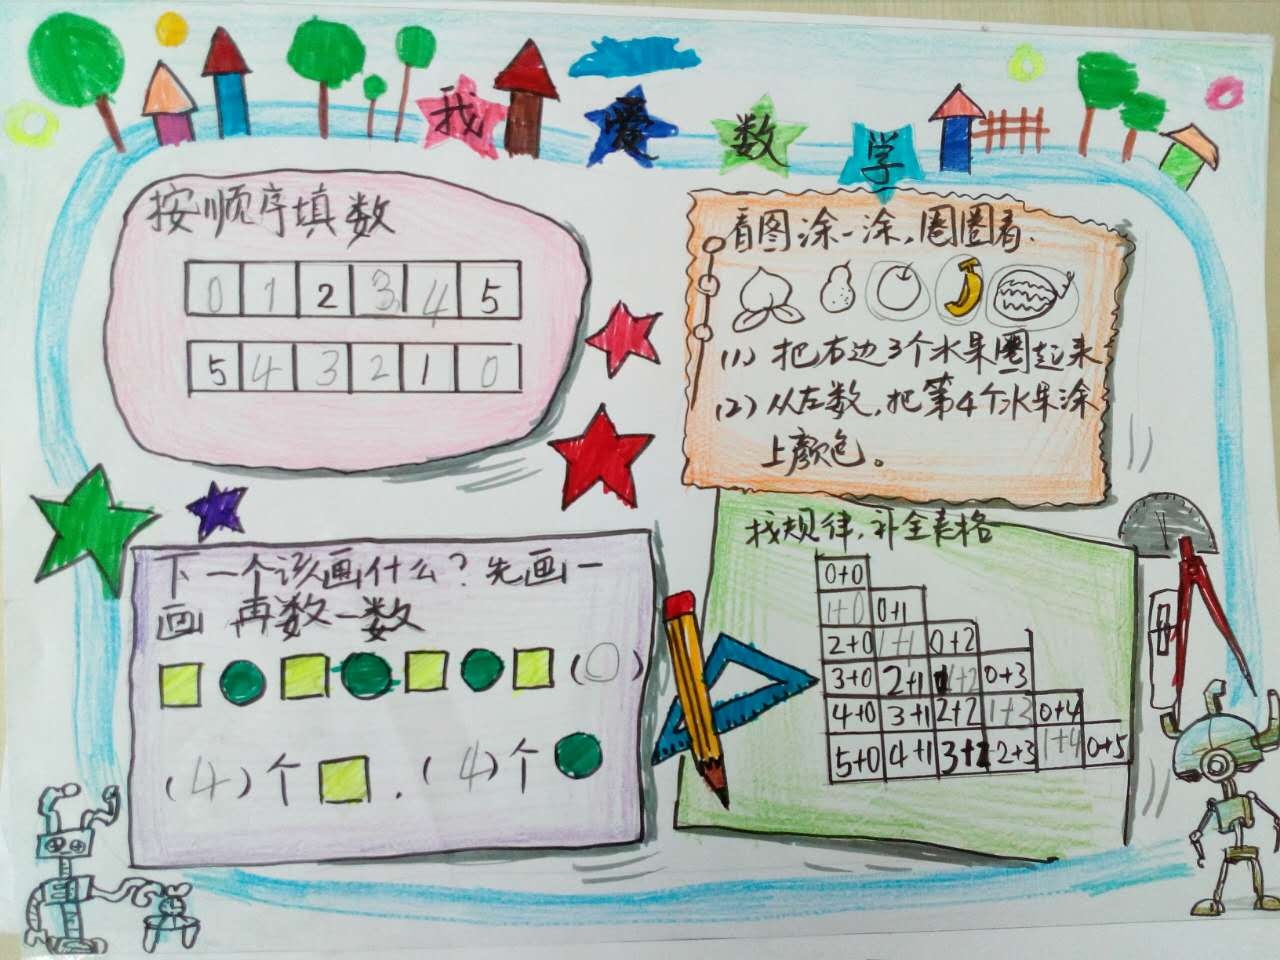 我爱数学
按顺序填数
0 1 2 3 4 5
5 4 3 2 1 0
看图涂一涂,圈圈看.
(1) 把右边3个水果圈起来
(2) 从左数,把第4个水果涂
上颜色。
下一个该画什么?先画一
画 再数一数
(○)
(4)个 . (4)个
找规律,补全表格
0+0
1+0 0+1
2+0 1+1 0+2
3+0 2+1 1+2 0+3
4+0 3+1 2+2 1+3 0+4
5+0 4+1 3+2 2+3 1+4 0+5